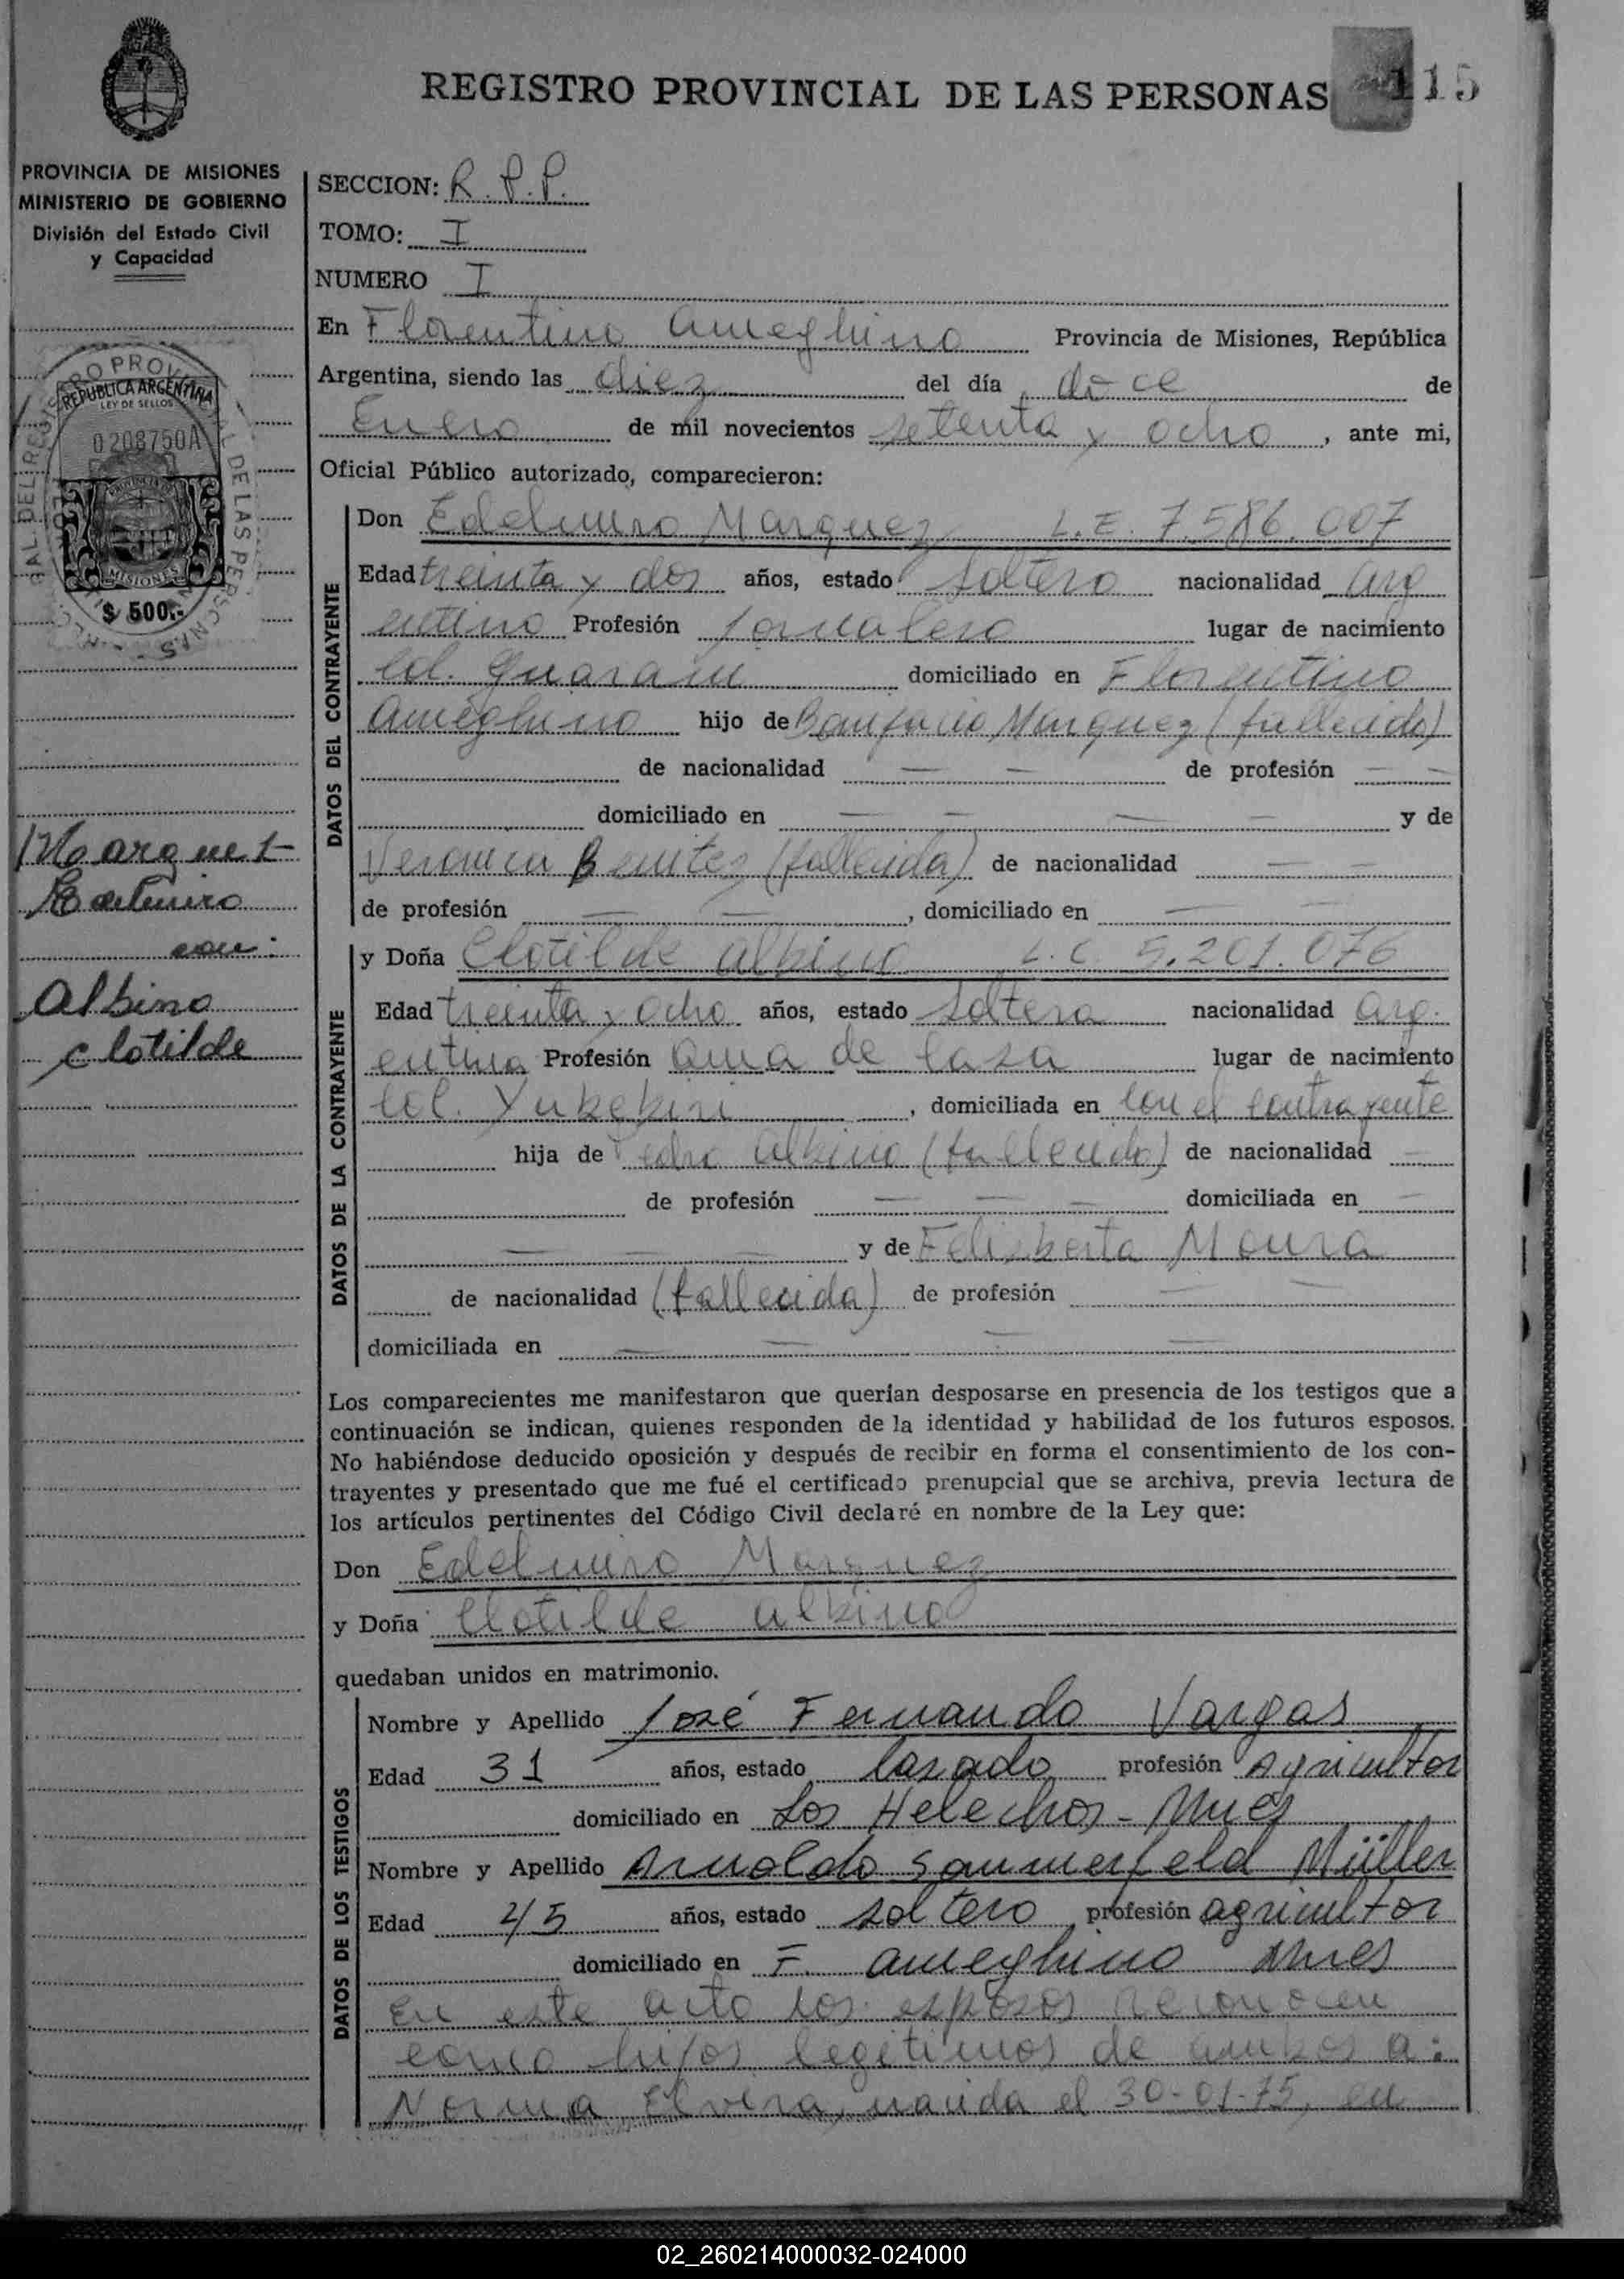 REGISTRO PROVINCIAL DE LAS PERSONAS 115
PROVINCIA DE MISIONES
MINISTERIO DE GOBIERNO
División del Estado Civil
y Capacidad
REPUBLICA ARGENTINA
LEY DE SELLOS
0208750A
MISIONES
$ 500.-
Marquez
Edelmiro
con:
Albino
Clotilde
SECCION: R.P.P.
TOMO: I
NUMERO I
En Florentino Ameghino Provincia de Misiones, República
Argentina, siendo las diez del día doce de
Enero de mil novecientos setenta y ocho, ante mi,
Oficial Público autorizado, comparecieron:
DATOS DEL CONTRAYENTE
Don Edelmiro Marquez L.E. 7.586.007
Edad treinta y dos años, estado soltero nacionalidad arg
entino Profesión Jornalero lugar de nacimiento
Col. Guarani domiciliado en Florentino
Ameghino hijo de Bonifacio Marquez (fallecido)
de nacionalidad — — de profesión — —
domiciliado en — — — — y de
Veronica Benitez (fallecida) de nacionalidad — —
de profesión — —, domiciliado en — —
DATOS DE LA CONTRAYENTE
y Doña Clotilde Albino L.C. 5.201.076
Edad treinta y ocho años, estado soltera nacionalidad arg.
entina Profesión ama de casa lugar de nacimiento
Col. Yukekiri, domiciliada en con el contrayente
hija de Pedro Albino (fallecido) de nacionalidad —
de profesión — — — domiciliada en —
— — — y de Felisberta Moura
de nacionalidad (fallecida) de profesión — —
domiciliada en — — — —
Los comparecientes me manifestaron que querían desposarse en presencia de los testigos que a
continuación se indican, quienes responden de la identidad y habilidad de los futuros esposos.
No habiéndose deducido oposición y después de recibir en forma el consentimiento de los con-
trayentes y presentado que me fué el certificado prenupcial que se archiva, previa lectura de
los artículos pertinentes del Código Civil declaré en nombre de la Ley que:
Don Edelmiro Marquez
y Doña Clotilde Albino
quedaban unidos en matrimonio.
DATOS DE LOS TESTIGOS
Nombre y Apellido José Fernando Vargas
Edad 31 años, estado Casado profesión Agricultor
domiciliado en Los Helechos - Mnes
Nombre y Apellido Arnoldo Sommerfeld Müller
Edad 45 años, estado soltero profesión agricultor
domiciliado en F. Ameghino Mnes
En este acto los esposos reconocen
como hijos legitimos de ambos a:
Norma Elvira, nacida el 30-01-75, en
02_260214000032-024000